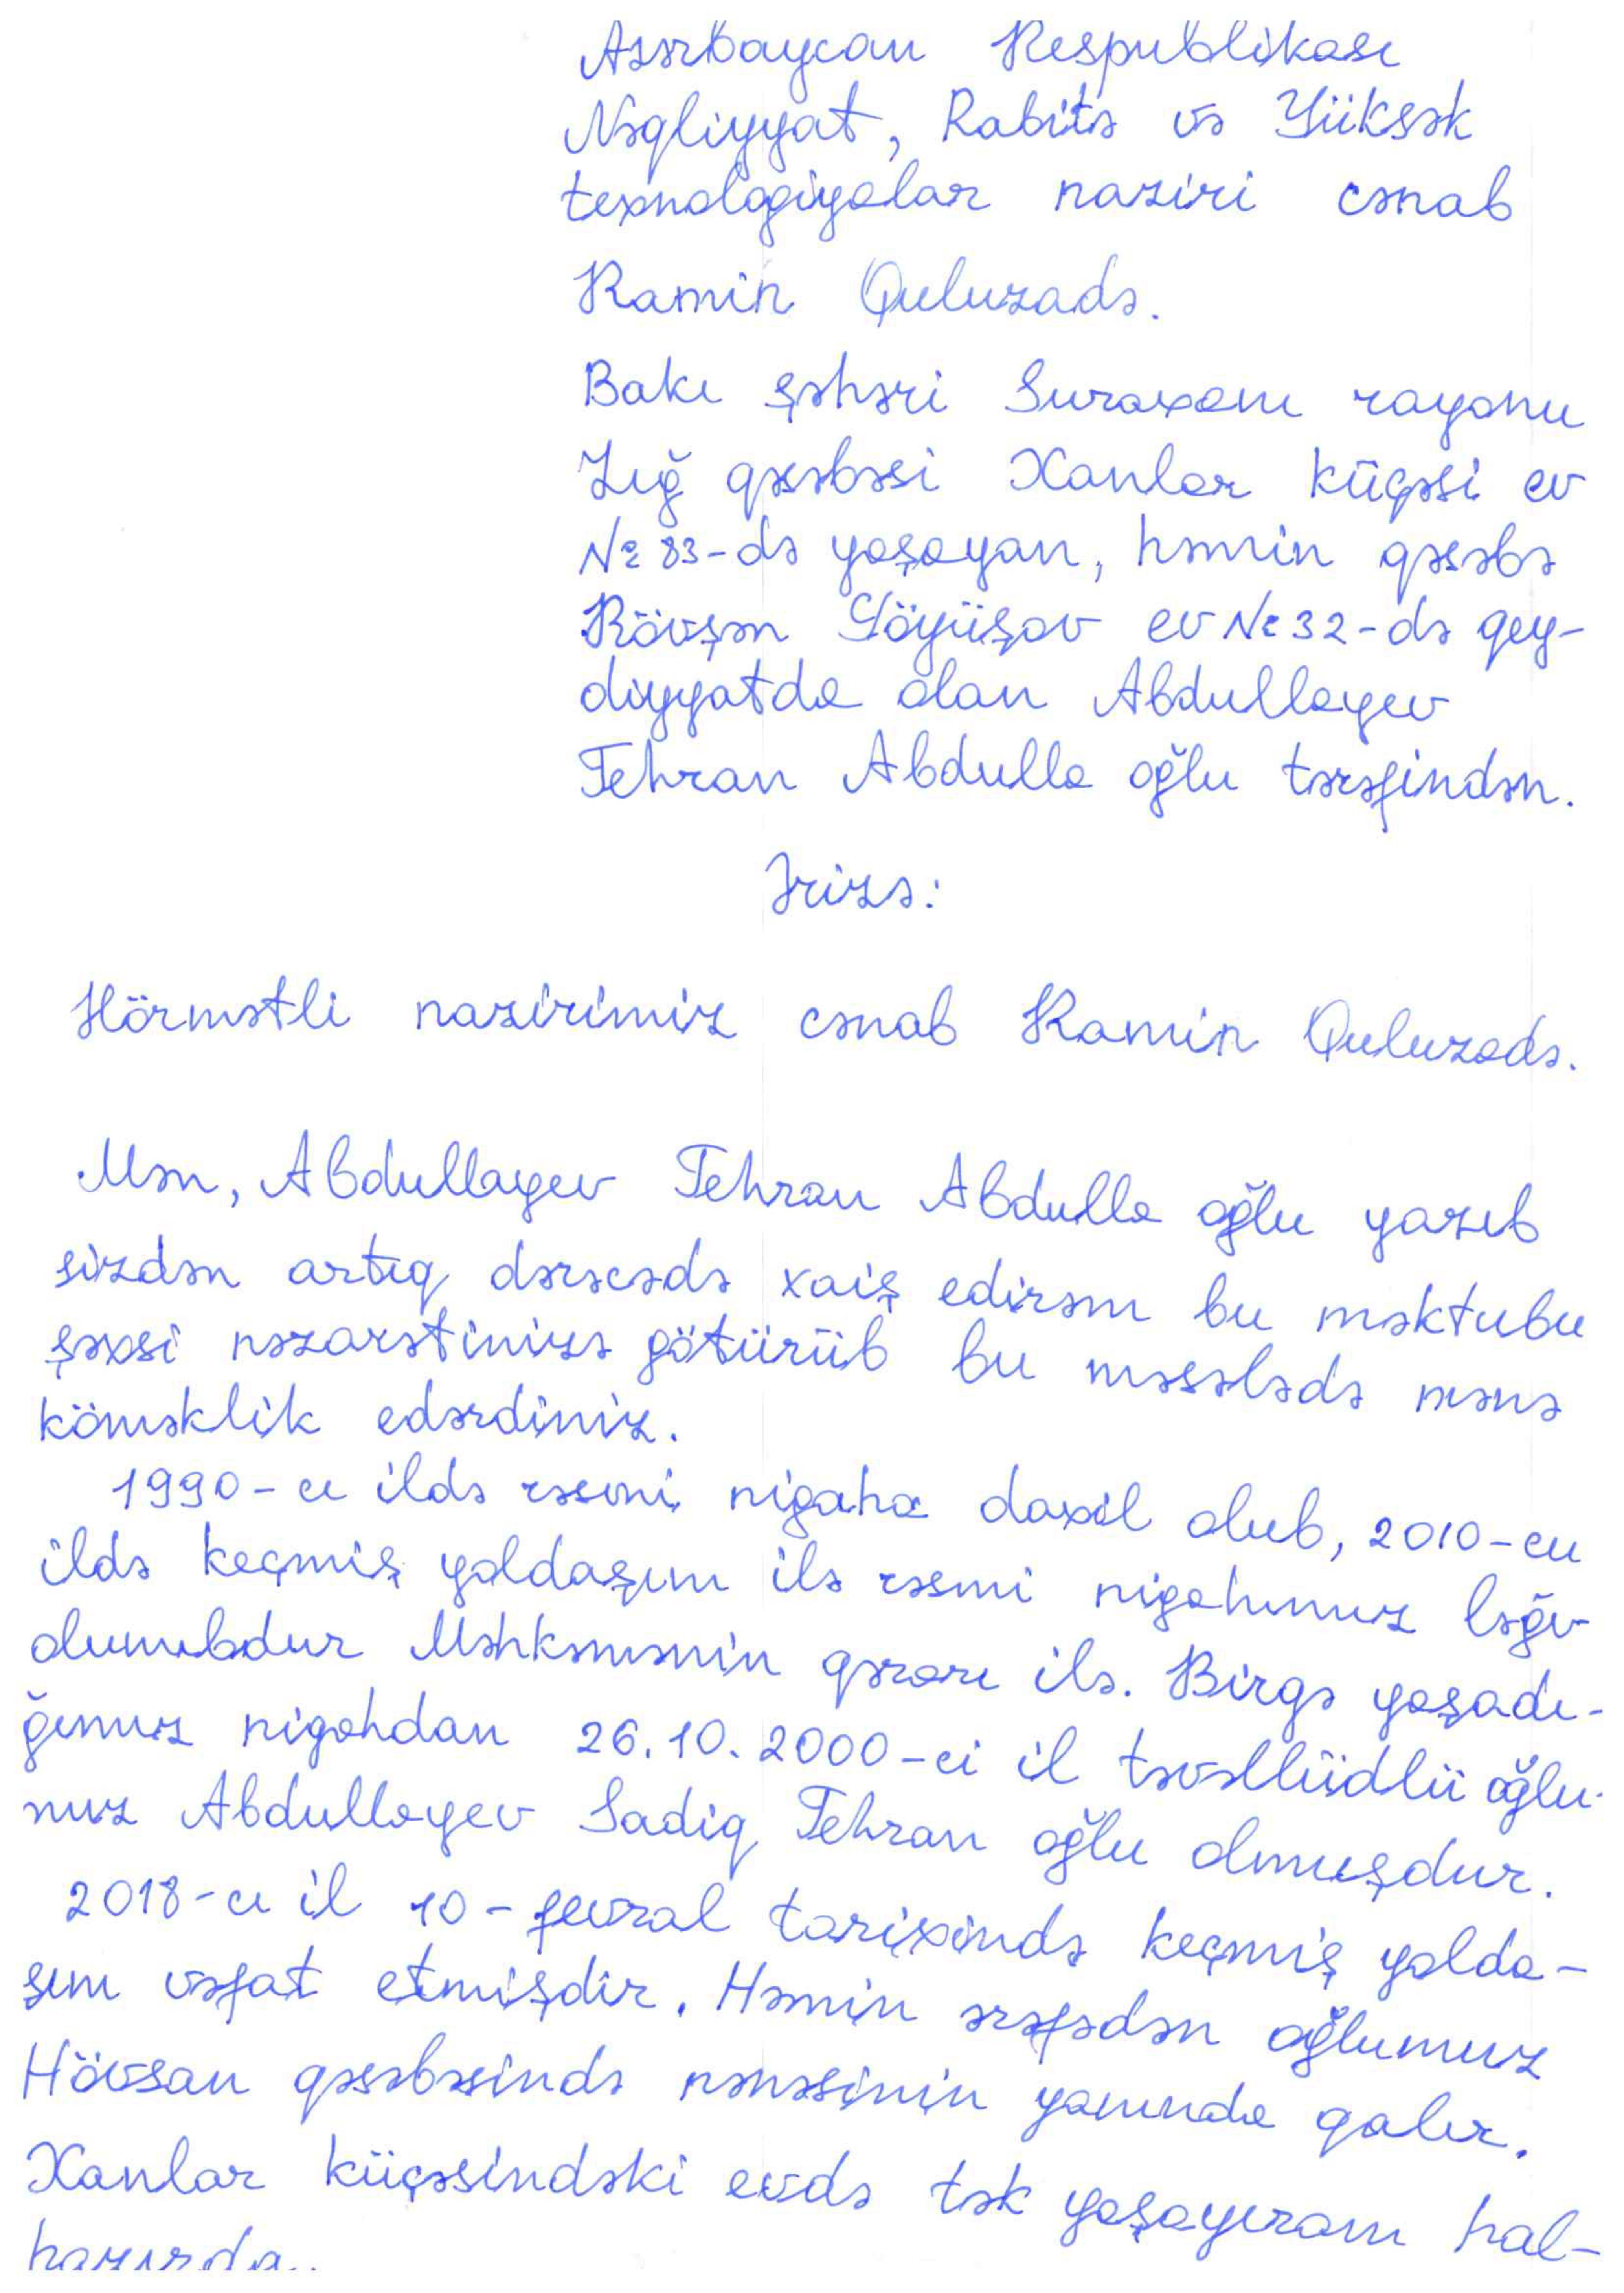 Azərbaycan Respublikası
Nəqliyyat, Rabitə və Yüksək
texnologiyalar naziri cənab
Ramin Quluzadə.
Bakı şəhəri Suraxanı rayonu
Zığ qəsəbəsi Xanlar küçəsi ev
№ 83-də yaşayan, həmin qəsəbə
Rövşən Göyüşov ev № 32-də qey-
diyyatda olan Abdullayev
Tehran Abdulla oğlu tərəfindən.
Ərizə:
Hörmətli nazirimiz cənab Ramin Quluzadə.
Mən, Abdullayev Tehran Abdulla oğlu yazıb
sizdən artıq dərəcədə xaiş edirəm bu məktubu
şəxsi nəzarətinizə götürüb bu məsələdə mənə
köməklik edərdiniz.
1990-cı ildə rəsmi nigaha daxil olub, 2010-cu
ildə keçmiş yoldaşım ilə rəsmi nigahımız ləğv
olunubdur Məhkəmənin qərarı ilə. Birgə yaşadı-
ğımız nigahdan 26.10.2000-ci il təvəllüdlü oğlu-
muz Abdullayev Sadiq Tehran oğlu olmuşdur.
2018-ci il 10-fevral tarixində keçmiş yolda-
şım vəfat etmişdir. Həmin ərəfədən oğlumuz
Hövsan qəsəbəsində nənəsinin yanında qalır.
Xanlar küçəsindəki evdə tək yaşayıram hal-
hazırda..